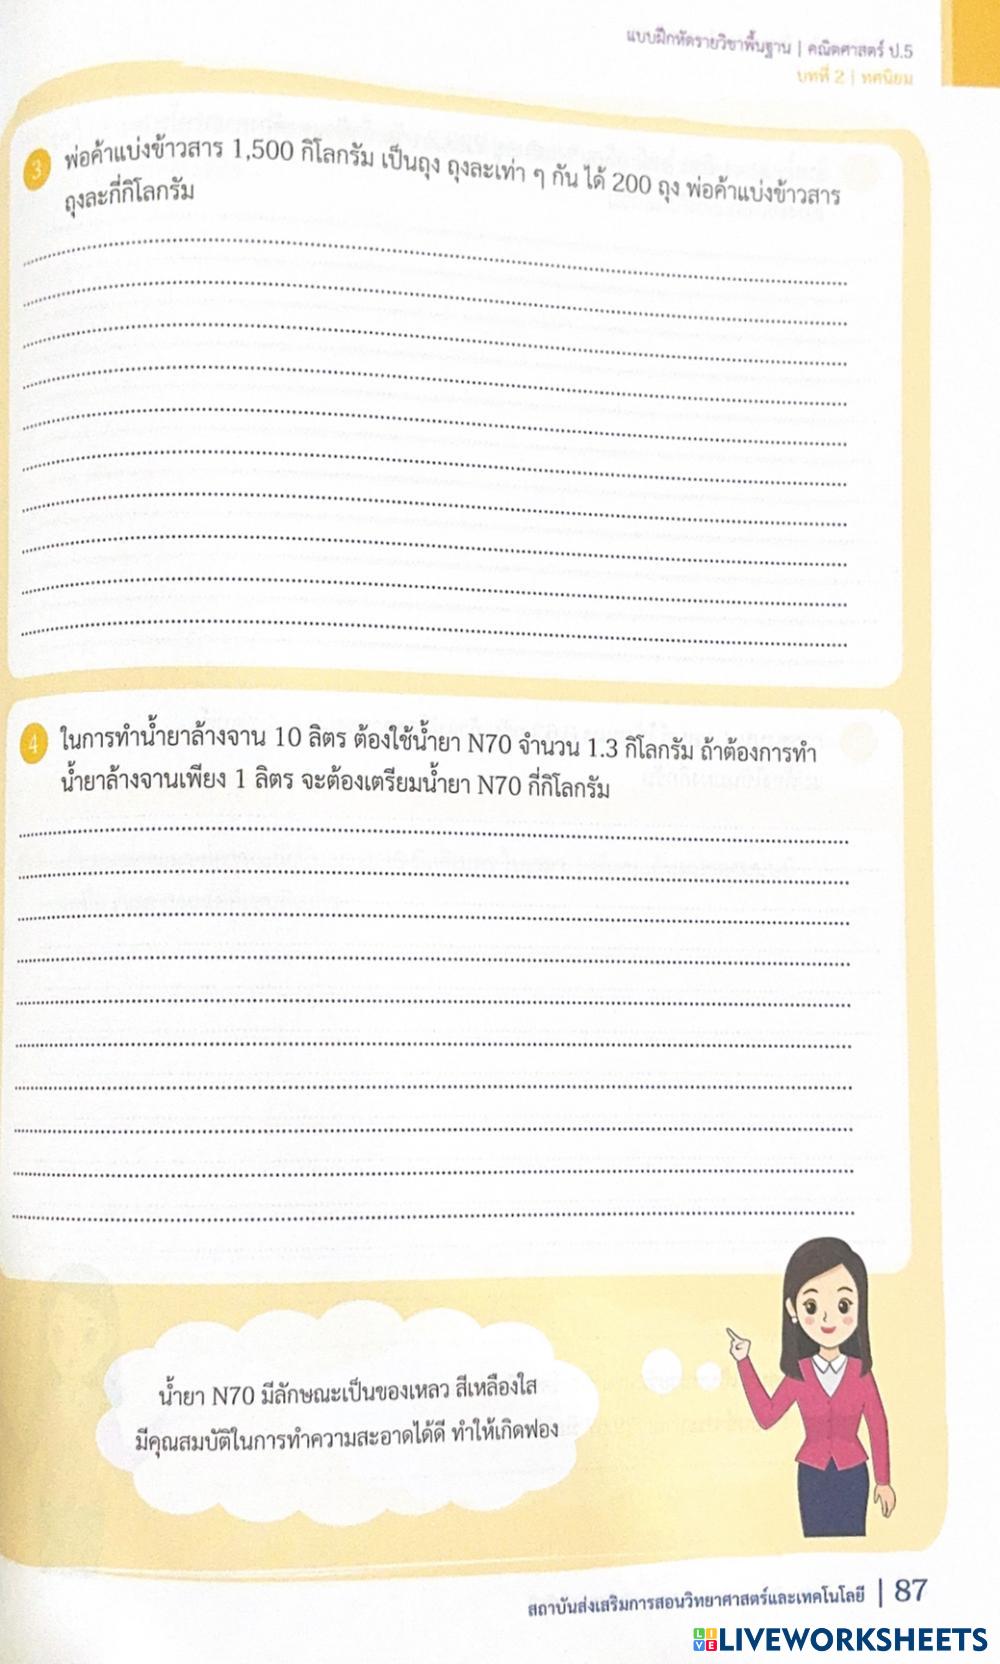 แบบฝึกหัดรายวิชาพื้นฐาน | คณิตศาสตร์ ป.5
บทที่ 2 | ทศนิยม
3 พ่อค้าแบ่งข้าวสาร 1,500 กิโลกรัม เป็นถุง ถุงละเท่า ๆ กัน ได้ 200 ถุง พ่อค้าแบ่งข้าวสาร
ถุงละกี่กิโลกรัม
4 ในการทำน้ำยาล้างจาน 10 ลิตร ต้องใช้น้ำยา N70 จำนวน 1.3 กิโลกรัม ถ้าต้องการทำ
น้ำยาล้างจานเพียง 1 ลิตร จะต้องเตรียมน้ำยา N70 กี่กิโลกรัม
น้ำยา N70 มีลักษณะเป็นของเหลว สีเหลืองใส
มีคุณสมบัติในการทำความสะอาดได้ดี ทำให้เกิดฟอง
สถาบันส่งเสริมการสอนวิทยาศาสตร์และเทคโนโลยี | 87
LIVEWORKSHEETS